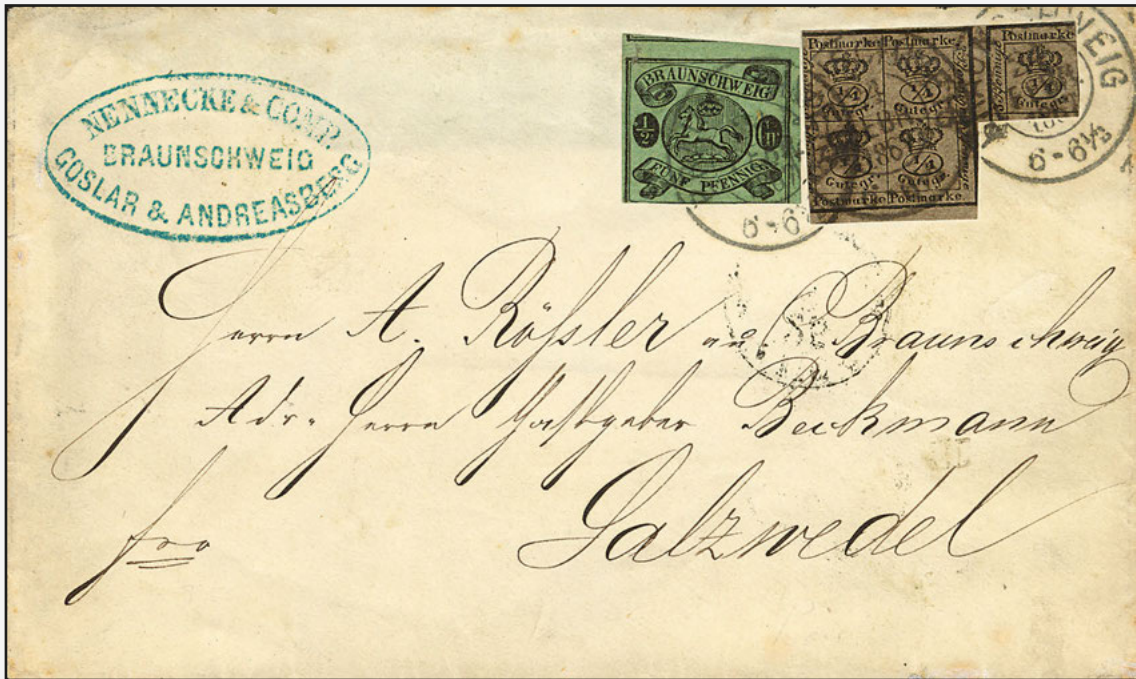 NENNECKE & COMP.
BRAUNSCHWEIG
GOSLAR & ANDREASBERG
BRAUNSCHWEIG
1/2
FÜNF PFENNIG
Postmarke Postmarke
1/4 1/4
Gutegr. Gutegr.
1/4 1/4
Gutegr. Gutegr.
Postmarke Postmarke
Postmarke
1/4
Gutegr.
6-6½
6-6
Herrn A. Rößler aus Braunschweig
Adr. Herrn Gastgeber Beckmann
fro
Salzwedel